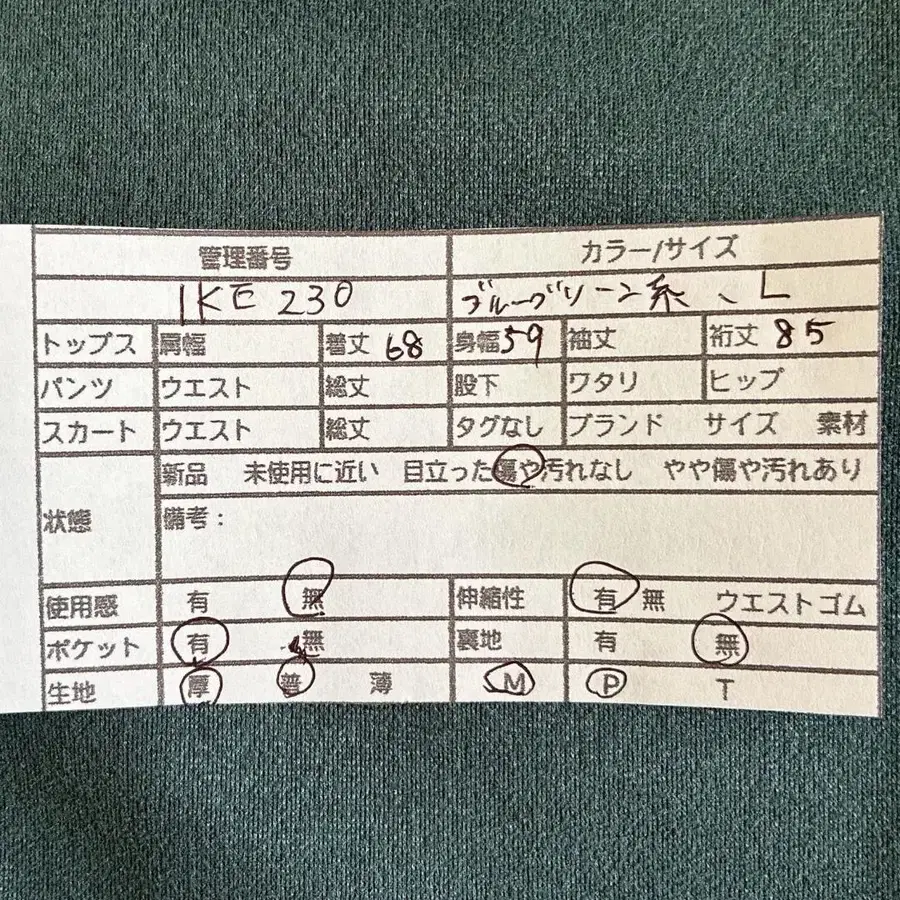 管理番号 カラー/サイズ
IKE 230 ブルーグリーン系、L
トップス 肩幅 着丈 68 身幅 59 袖丈 裄丈 85
パンツ ウエスト 総丈 股下 ワタリ ヒップ
スカート ウエスト 総丈 タグなし ブランド サイズ 素材
新品 未使用に近い 目立った傷や汚れなし やや傷や汚れあり
状態 備考:
使用感 有 無 伸縮性 有 無 ウエストゴム
ポケット 有 無 裏地 有 無
生地 厚 普 薄 M P T